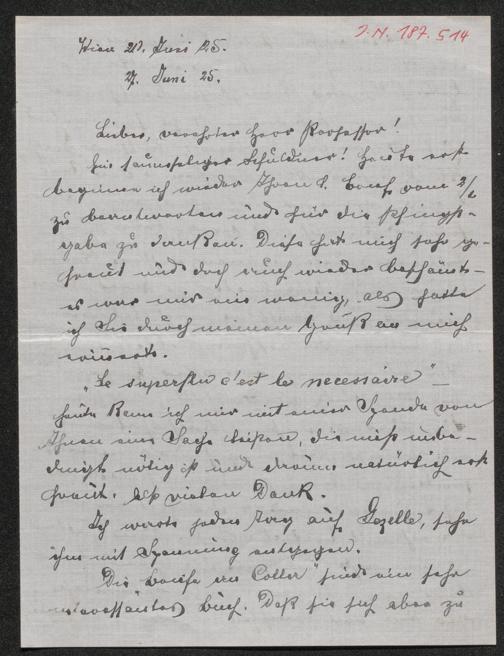 J.N. 187.514
Wien 20. Juni 25.
27. Juni 25.
Lieber, verehrter Herr Professor!
Ein saumseliger Schuldner! Heute erst
beginne ich wieder Ihren l. Brief vom 2/6
zu beantworten und für die Pfingst-
gabe zu danken. Diese hat mich sehr ge-
freut und doch auch wieder beschämt –
es war mir ein wenig, als hätte
ich Sie durch meinen
"Le superflu c'est le necessaire" –
heute kann ich mir mit einer Spende von
Ihnen eine Sache leisten, die nicht unbe-
dingt nötig ist und drum natürlich erst
freut. Also vielen Dank.
Ich warte jeden Tag auf Gezelle, sehe
ihm mit Spannung entgegen.
Die Briefe an Cotta" sind ein sehr
interessantes Buch. Daß sie sich aber zu